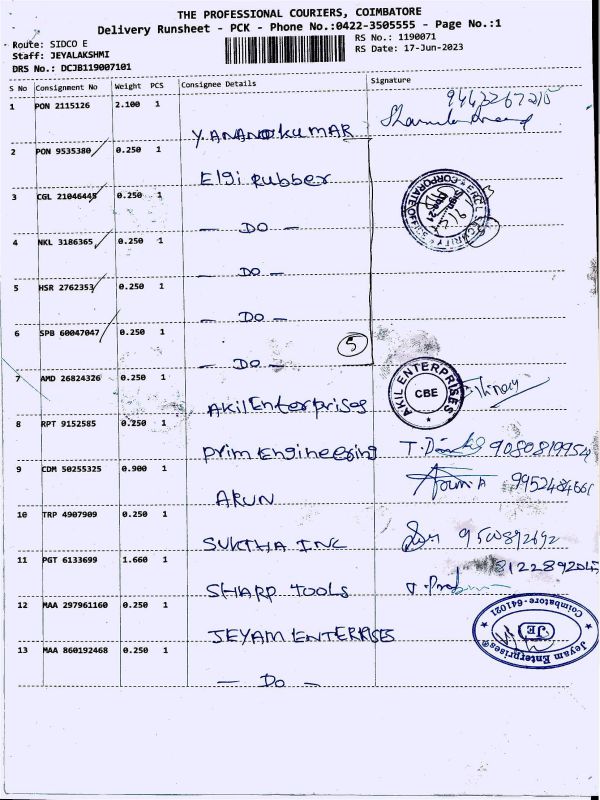 THE PROFESSIONAL COURIERS, COIMBATORE
Delivery Runsheet - PCK - Phone No.:0422-3505555 - Page No.:1
Route: SIDCO E
RS No.: 1190071
Staff: JEYALAKSHMI
RS Date: 17-Jun-2023
DRS No.: DCJB119007101
S No Consignment No Weight PCS Consignee Details Signature
1 PON 2115126 2.100 1 Y.ANANDKUMAR
2 PON 9535380 0.250 1 Elgi Rubber
3 CGL 21046445 0.250 1 — DO —
4 NKL 3186365 0.250 1 — DO —
5 HSR 2762353 0.250 1 — DO —
6 SPB 60047047 0.250 1 — DO —
5
7 AMD 26824326 0.250 1 Akil Enterprises
AKIL ENTERPRISES
CBE
8 RPT 9152585 0.250 1 Prim Engineering 9080819954
9 CDM 50255325 0.900 1 ARUN
10 TRP 4907909 0.250 1 SUKTHA INC
11 PGT 6133699 1.660 1 SHARP TOOLS
12 MAA 297961160 0.250 1 JEYAM ENTERRISES
Jeyam Enterprises
JE
Coimbatore - 641021
13 MAA 860192468 0.250 1 — DO —